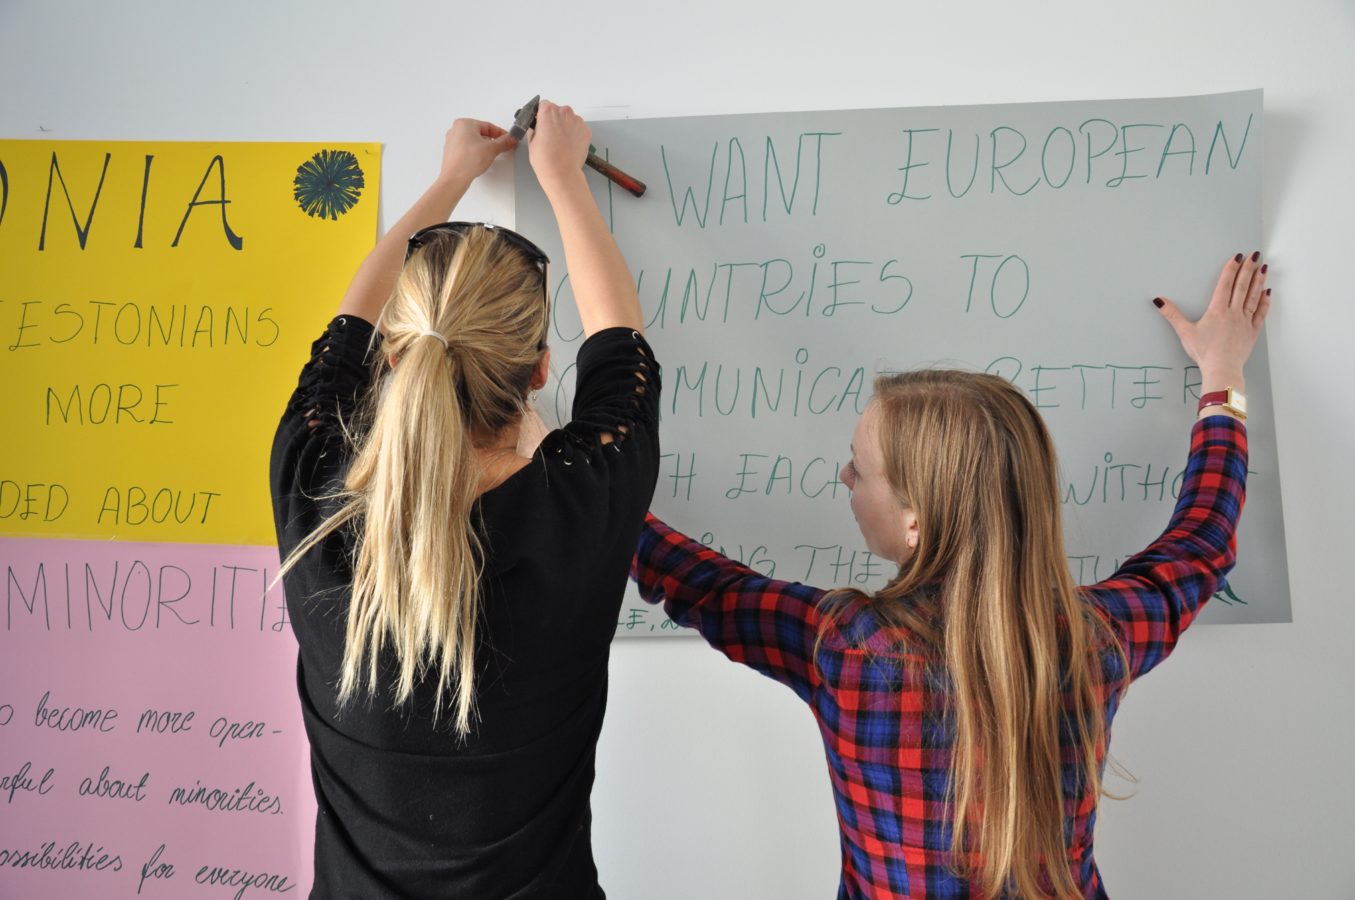 ONIA
ESTONIANS
MORE
DED ABOUT
MINORITIE
become more open-
about minorities.
ossibilities for everyone
I WANT EUROPEAN
COUNTRIES TO
COMMUNICAT BETTER
TH EACH WITHO
ING THE